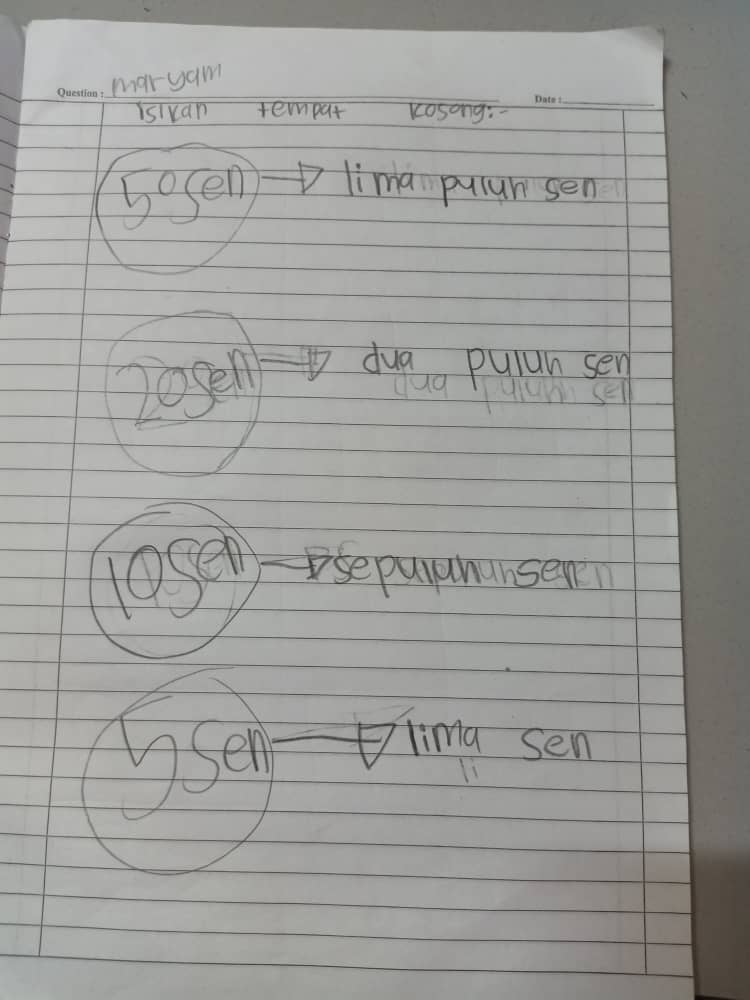 Question : maryam
Date :
isikan tempat kosong:-
50 sen → lima puluh sen
20 sen → dua puluh sen
10 sen → sepuluh sen
5 sen → lima sen
li